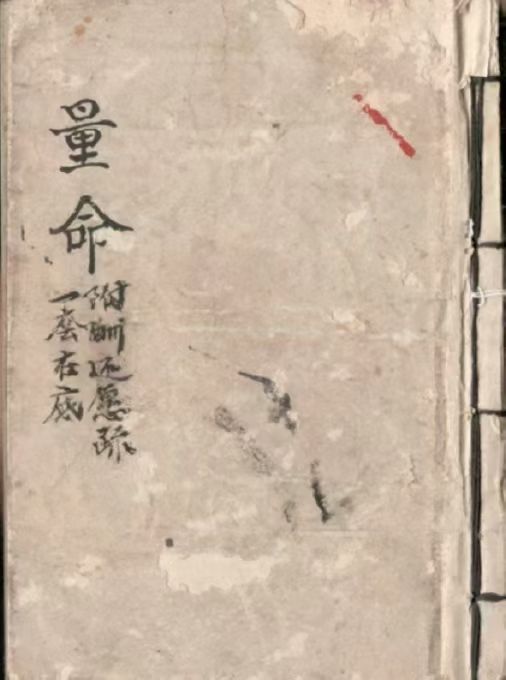 量命
附酬还愿疏
一在底